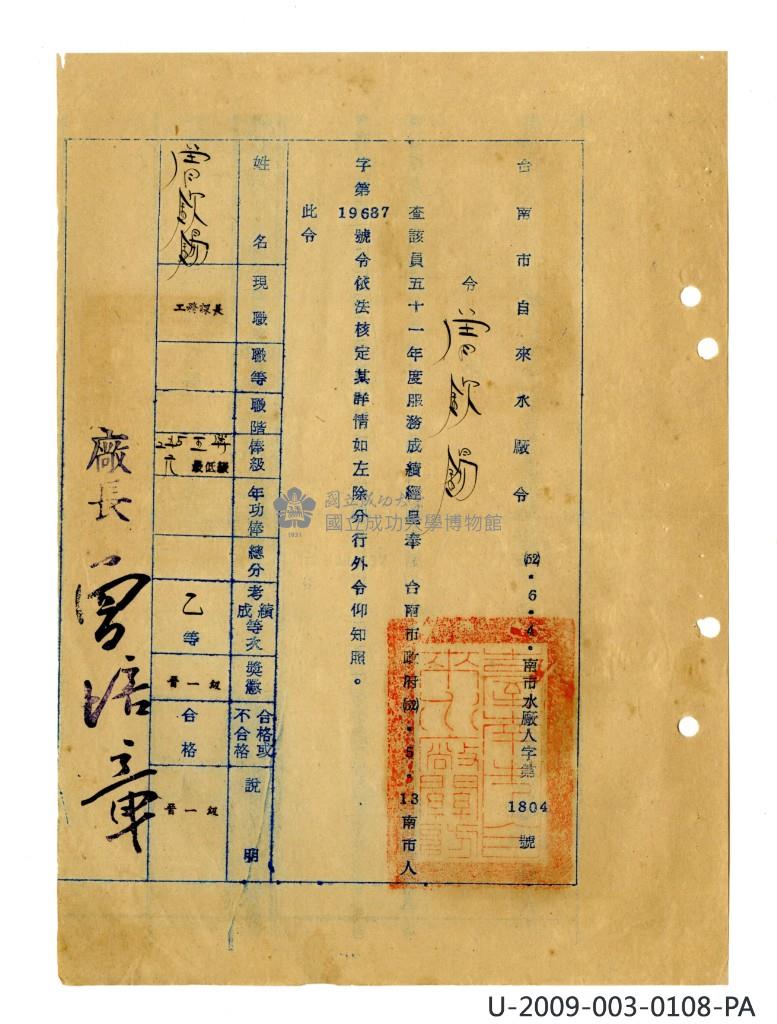 台南市自來水廠令 (52)．6．4．南市水廠人字第1804號
令 曾欽賜
查該員五十一年度服務成績經呈奉 台南市政府(52)．5．13南市人
字第19687號令依法核定其詳情如左除分行外令仰知照。
此令
姓名 現職 職等 職階 俸級 年功俸 總分 考績成績等次 獎懲 合格或不合格 說明
曾欽賜 工務課長 245元 最低級 乙等 晉一級 合格 晉一級
廠長 曾培章
國立成功大學
國立成功大學博物館
1931
U-2009-003-0108-PA